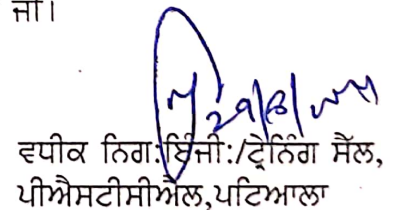 ਜੀ।
29/8/
ਵਧੀਕ ਨਿਗ:ਇੰਜੀ:/ਟ੍ਰੇਨਿੰਗ ਸੈੱਲ,
ਪੀਐਸਟੀਸੀਐਲ,ਪਟਿਆਲਾ